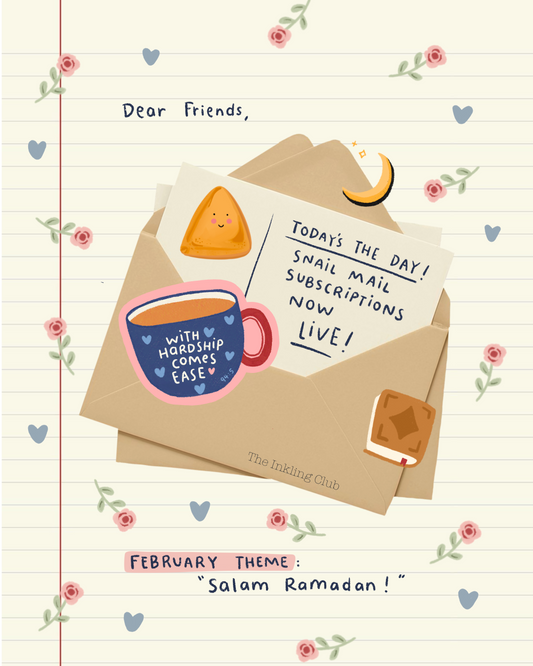 Dear Friends,
TODAY'S THE DAY!
SNAIL MAIL
SUBSCRIPTIONS
NOW
LIVE!
WITH
HARDSHIP
COMES
EASE
94:5
The Inkling Club
FEBRUARY THEME:
"Salam Ramadan!"